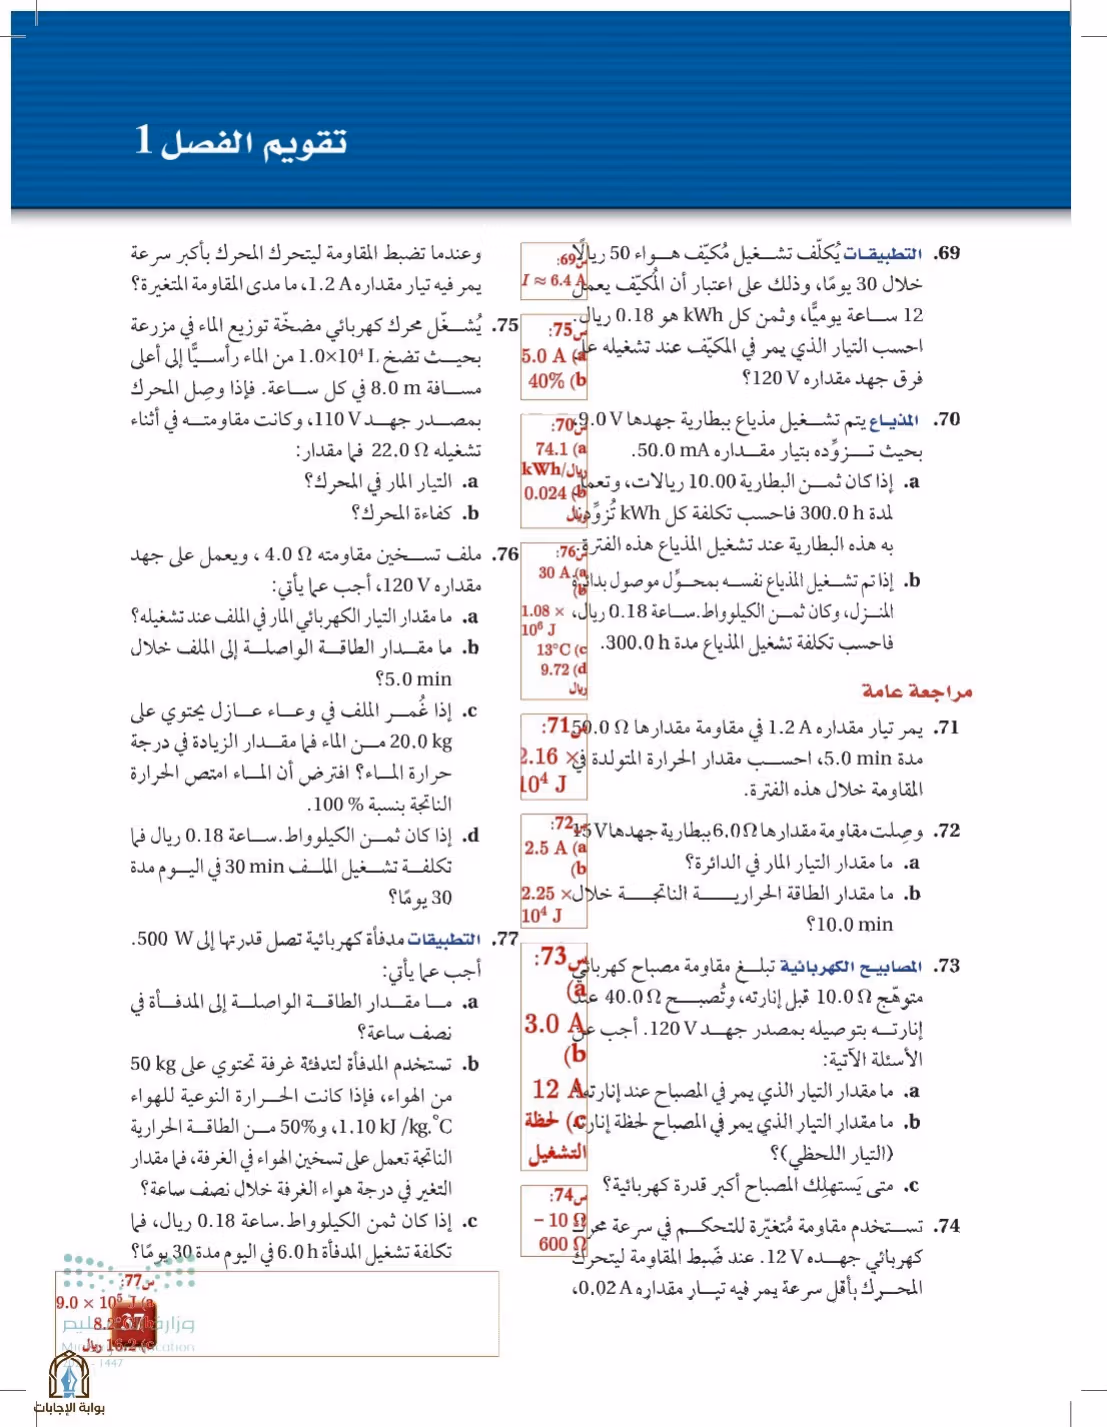 تقويم الفصل 1
69. التطبيقات يُكلّف تشغيل مُكيّف هواء 50 ريالًا
خلال 30 يومًا، وذلك على اعتبار أن المُكيّف يعمل
12 ساعة يوميًّا، وثمن كل kWh هو 0.18 ريال.
احسب التيار الذي يمر في المكيّف عند تشغيله على
فرق جهد مقداره 120 V؟
70. المذياع يتم تشغيل مذياع ببطارية جهدها 9.0 V،
بحيث تزوِّده بتيار مقداره 50.0 mA.
a. إذا كان ثمن البطارية 10.00 ريالات، وتعمل
لمدة 300.0 h فاحسب تكلفة كل kWh تُزوِّدنا
به هذه البطارية عند تشغيل المذياع هذه الفترة.
b. إذا تم تشغيل المذياع نفسه بمحوِّل موصول بدائرة
المنزل، وكان ثمن الكيلوواط.ساعة 0.18 ريال،
فاحسب تكلفة تشغيل المذياع مدة 300.0 h.
مراجعة عامة
71. يمر تيار مقداره 1.2 A في مقاومة مقدارها 50.0 Ω
مدة 5.0 min، احسب مقدار الحرارة المتولدة في
المقاومة خلال هذه الفترة.
72. وصِلت مقاومة مقدارها 6.0 Ω ببطارية جهدها 15 V
a. ما مقدار التيار المار في الدائرة؟
b. ما مقدار الطاقة الحرارية الناتجة خلال
10.0 min؟
73. المصابيح الكهربائية تبلغ مقاومة مصباح كهربائي
متوهّج 10.0 Ω قبل إنارته، وتُصبح 40.0 Ω عند
إنارته بتوصيله بمصدر جهد 120 V. أجب عن
الأسئلة الآتية:
a. ما مقدار التيار الذي يمر في المصباح عند إنارته؟
b. ما مقدار التيار الذي يمر في المصباح لحظة إنارته
(التيار اللحظي)؟
c. متى يَستهلِك المصباح أكبر قدرة كهربائية؟
74. تستخدم مقاومة مُتغيّرة للتحكم في سرعة محرك
كهربائي جهده 12 V. عند ضَبط المقاومة ليتحرك
المحرك بأقل سرعة يمر فيه تيار مقداره 0.02 A،
وعندما تضبط المقاومة ليتحرك المحرك بأكبر سرعة
يمر فيه تيار مقداره 1.2 A، ما مدى المقاومة المتغيرة؟
75. يُشغّل محرك كهربائي مضخّة توزيع الماء في مزرعة
بحيث تضخ 1.0×10⁴ L من الماء رأسيًّا إلى أعلى
مسافة 8.0 m في كل ساعة. فإذا وصِل المحرك
بمصدر جهد 110 V، وكانت مقاومته في أثناء
تشغيله 22.0 Ω فما مقدار:
a. التيار المار في المحرك؟
b. كفاءة المحرك؟
76. ملف تسخين مقاومته 4.0 Ω ، ويعمل على جهد
مقداره 120 V، أجب عما يأتي:
a. ما مقدار التيار الكهربائي المار في الملف عند تشغيله؟
b. ما مقدار الطاقة الواصلة إلى الملف خلال
5.0 min؟
c. إذا غُمر الملف في وعاء عازل يحتوي على
20.0 kg من الماء فما مقدار الزيادة في درجة
حرارة الماء؟ افترض أن الماء امتص الحرارة
الناتجة بنسبة % 100.
d. إذا كان ثمن الكيلوواط.ساعة 0.18 ريال فما
تكلفة تشغيل الملف 30 min في اليوم مدة
30 يومًا؟
77. التطبيقات مدفأة كهربائية تصل قدرتها إلى 500 W.
أجب عما يأتي:
a. ما مقدار الطاقة الواصلة إلى المدفأة في
نصف ساعة؟
b. تستخدم المدفأة لتدفئة غرفة تحتوي على 50 kg
من الهواء، فإذا كانت الحرارة النوعية للهواء
1.10 kJ /kg.°C، و50% من الطاقة الحرارية
الناتجة تعمل على تسخين الهواء في الغرفة، فما مقدار
التغير في درجة هواء الغرفة خلال نصف ساعة؟
c. إذا كان ثمن الكيلوواط.ساعة 0.18 ريال، فما
تكلفة تشغيل المدفأة 6.0 h في اليوم مدة 30 يومًا؟
س69:
I ≈ 6.4 A
س75:
a) 5.0 A
b) 40%
س70:
a) 74.1
ريال/kWh
b) 0.024
ريال
س76:
a) 30 A
b)
1.08 ×
10⁶ J
c) 13°C
d) 9.72
ريال
س71:
2.16 ×
10⁴ J
س72:
a) 2.5 A
b)
2.25 ×
10⁴ J
س73:
a)
3.0 A
b)
12 A
c) لحظة
التشغيل
س74:
10 Ω –
600 Ω
س77:
a) 9.0 × 10⁵ J
b) 8.2°C
c) 16.2 ريال
37
1447
بوابة الإجابات